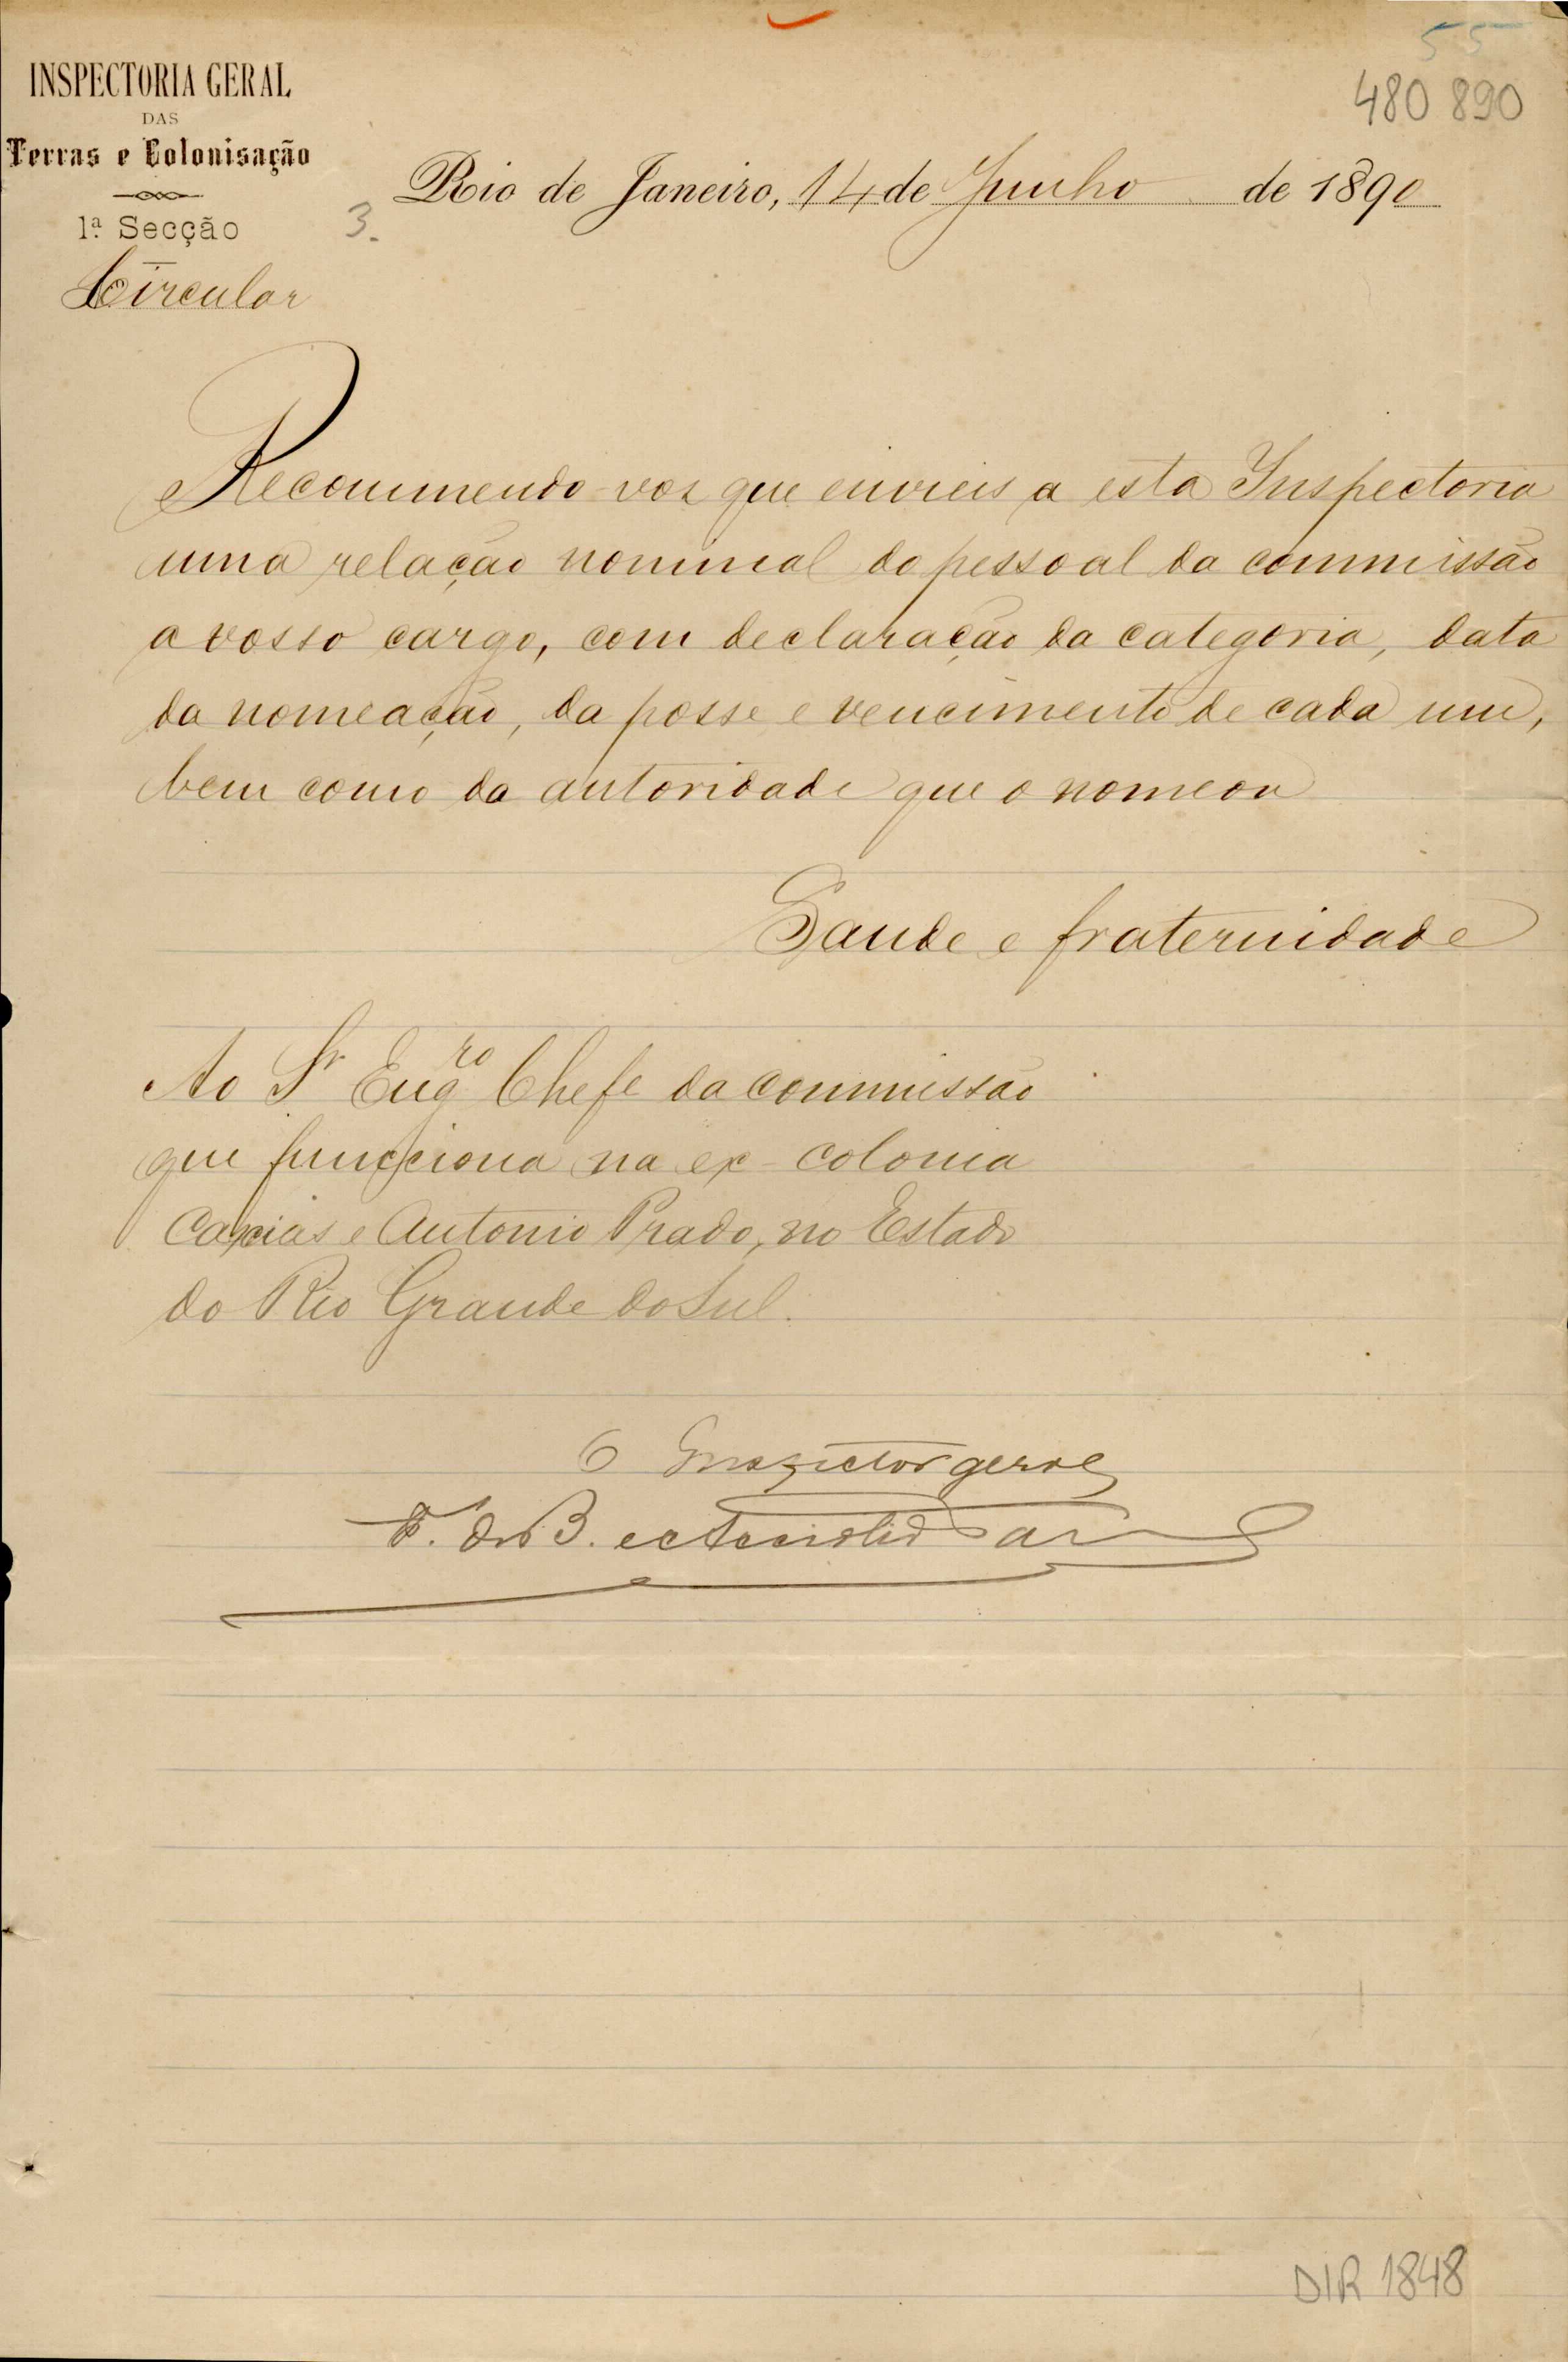 55
480 890
INSPECTORIA GERAL
DAS
Terras e Colonisação
1ª Secção
Circular
3.
Rio de Janeiro, 14 de Junho de 1890
Recommendo-vos que envieis a esta Inspectoria
uma relação nominal do pessoal da commissão
a vosso cargo, com declaração da categoria, data
da nomeação, da posse e vencimento de cada um,
bem como da autoridade que o nomeou
Saude e fraternidade
Ao Sr Engro Chefe da commissão
que funcciona na ex-colonia
Caxias e Antonio Prado, no Estado
do Rio Grande do Sul.
O Inspector geral
F. de B. e Accioli de
DIR 1848